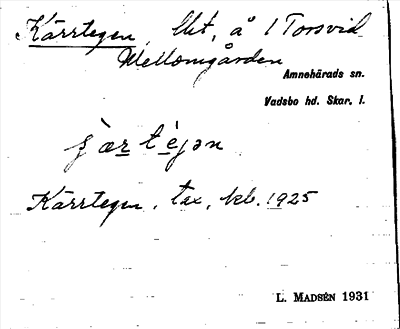 Kärrtegen, lht, å 1 Torsvid
Mellomgården
Amnehärads sn.
Vadsbo hd. Skar. l.
ʃær tejən
Kärrtegen, tax, kb. 1925
L. Madsén 1931